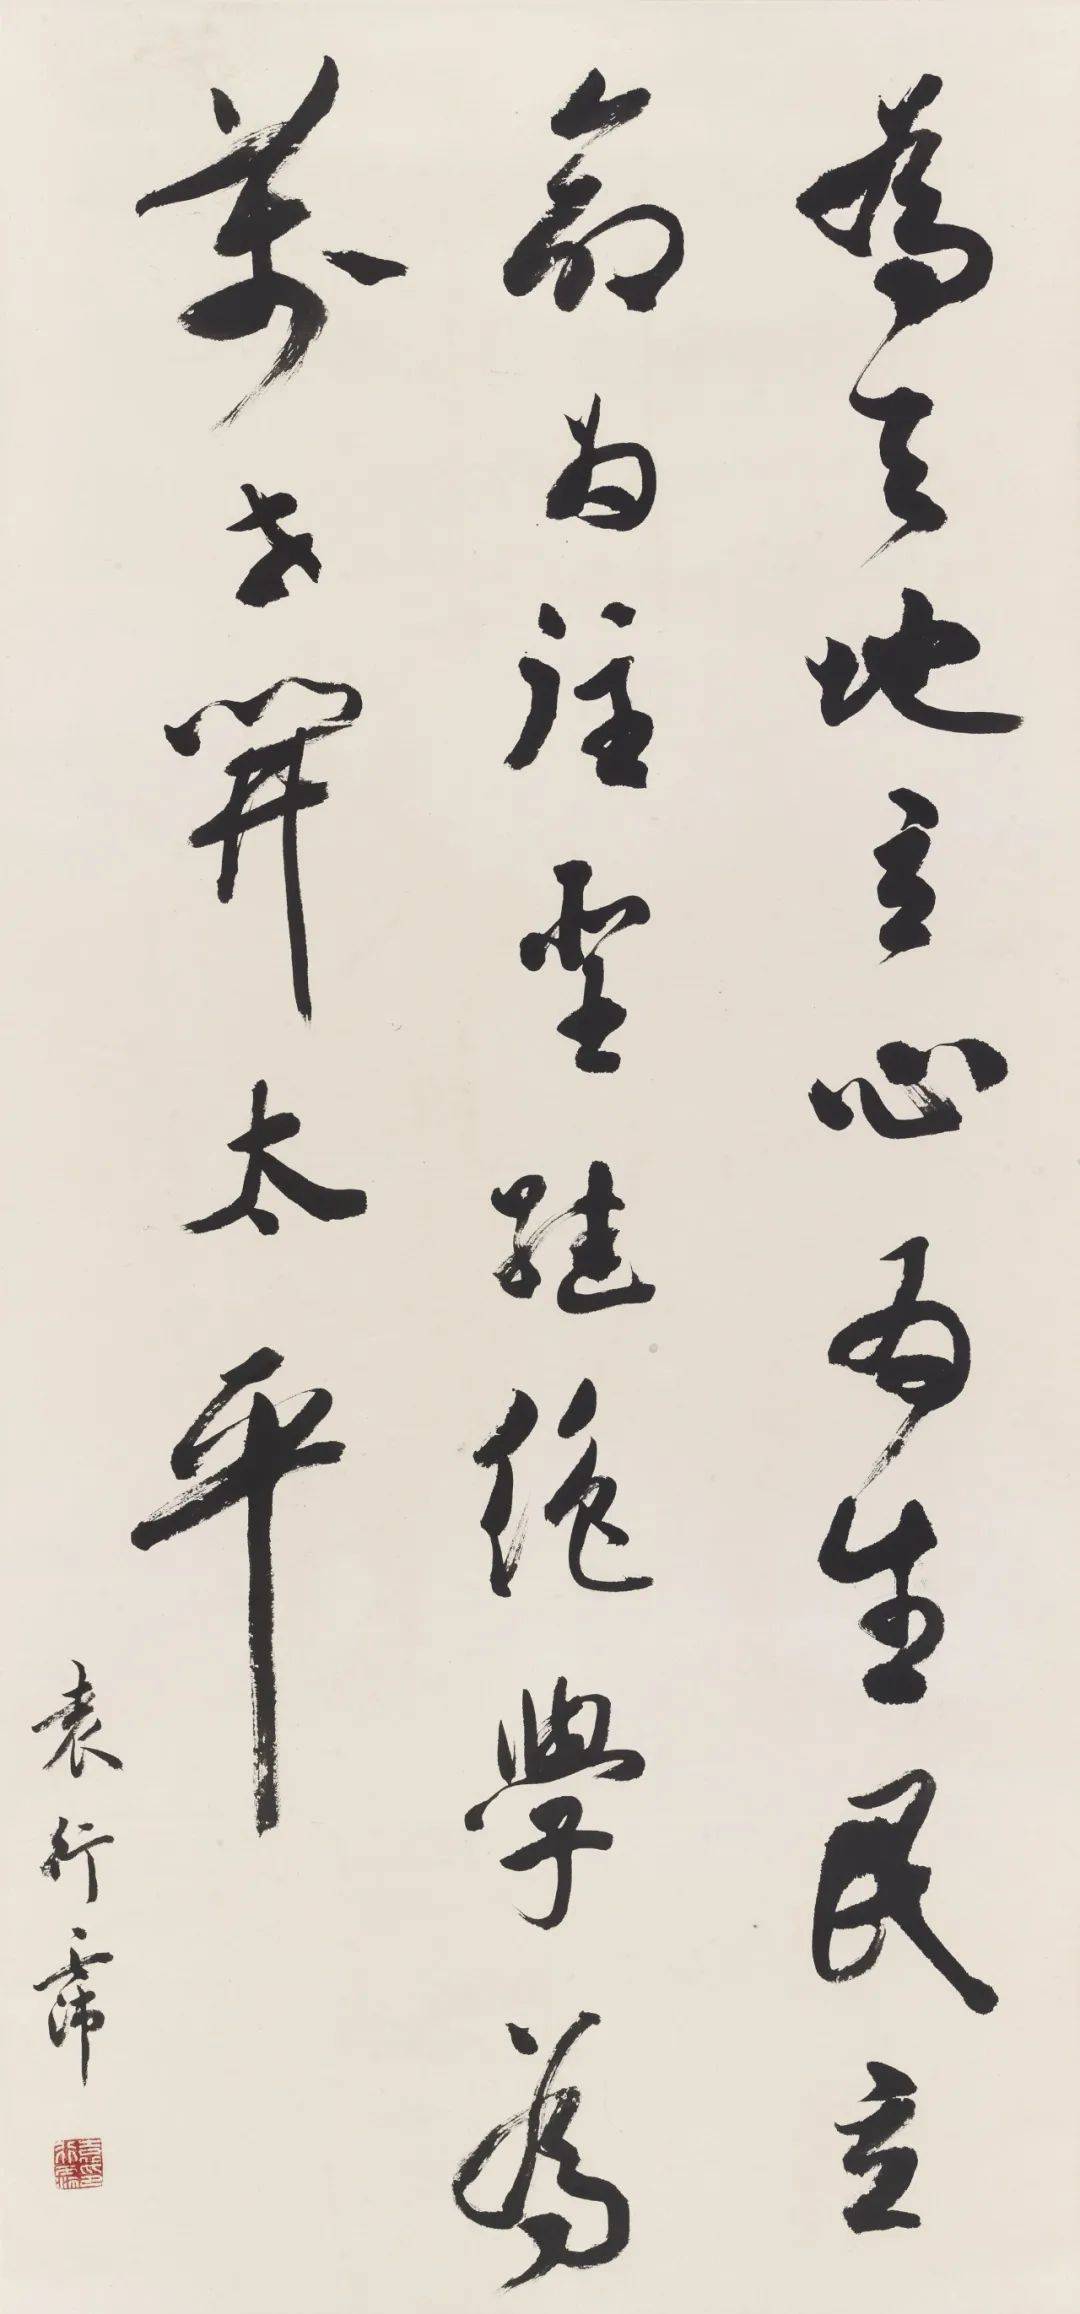 為天地立心為生民立
命為往聖繼絕學為
萬世開太平
袁行霈
袁行霈印